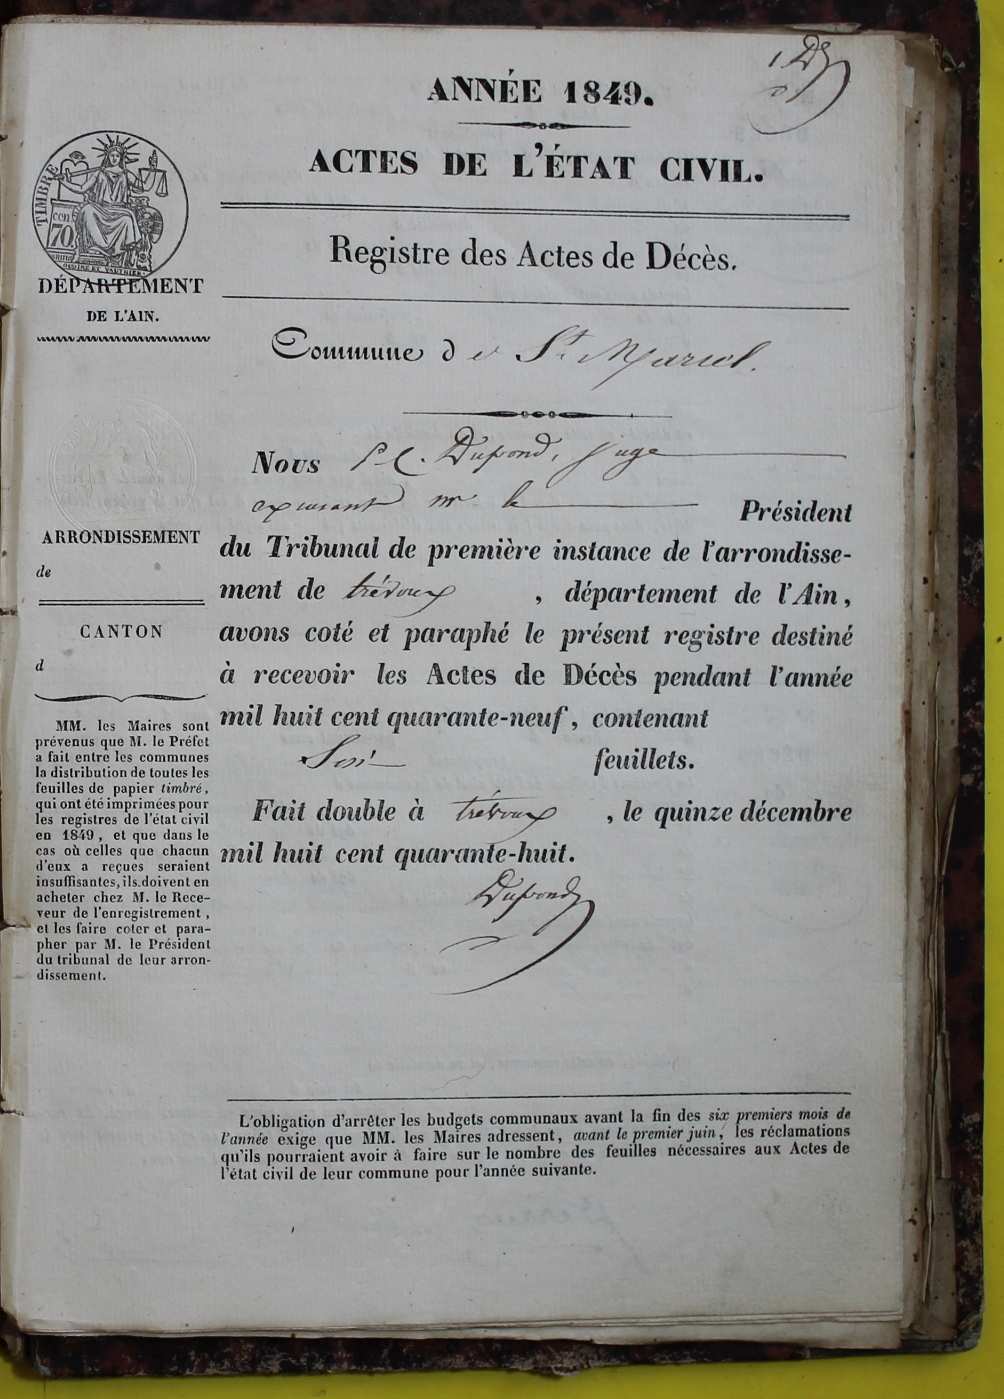 1 D
ANNÉE 1849.
ACTES DE L'ÉTAT CIVIL.
Registre des Actes de Décès.
Commune de St. Marcel.
TIMBRE
cen
70.
DÉPARTEMENT
DE L'AIN.
ARRONDISSEMENT
de
CANTON
d
MM. les Maires sont
prévenus que M. le Préfet
a fait entre les communes
la distribution de toutes les
feuilles de papier timbré,
qui ont été imprimées pour
les registres de l'état civil
en 1849, et que dans le
cas où celles que chacun
d'eux a reçues seraient
insuffisantes, ils doivent en
acheter chez M. le Rece-
veur de l'enregistrement,
et les faire coter et para-
pher par M. le Président
du tribunal de leur arron-
dissement.
Nous Dupond, Juge
Mr. le Président
du Tribunal de première instance de l'arrondisse-
ment de trévoux, département de l'Ain,
avons coté et paraphé le présent registre destiné
à recevoir les Actes de Décès pendant l'année
mil huit cent quarante-neuf, contenant
feuillets.
Fait double à trévoux, le quinze décembre
mil huit cent quarante-huit.
Dupond
L'obligation d'arrêter les budgets communaux avant la fin des six premiers mois de
l'année exige que MM. les Maires adressent, avant le premier juin, les réclamations
qu'ils pourraient avoir à faire sur le nombre des feuilles nécessaires aux Actes de
l'état civil de leur commune pour l'année suivante.